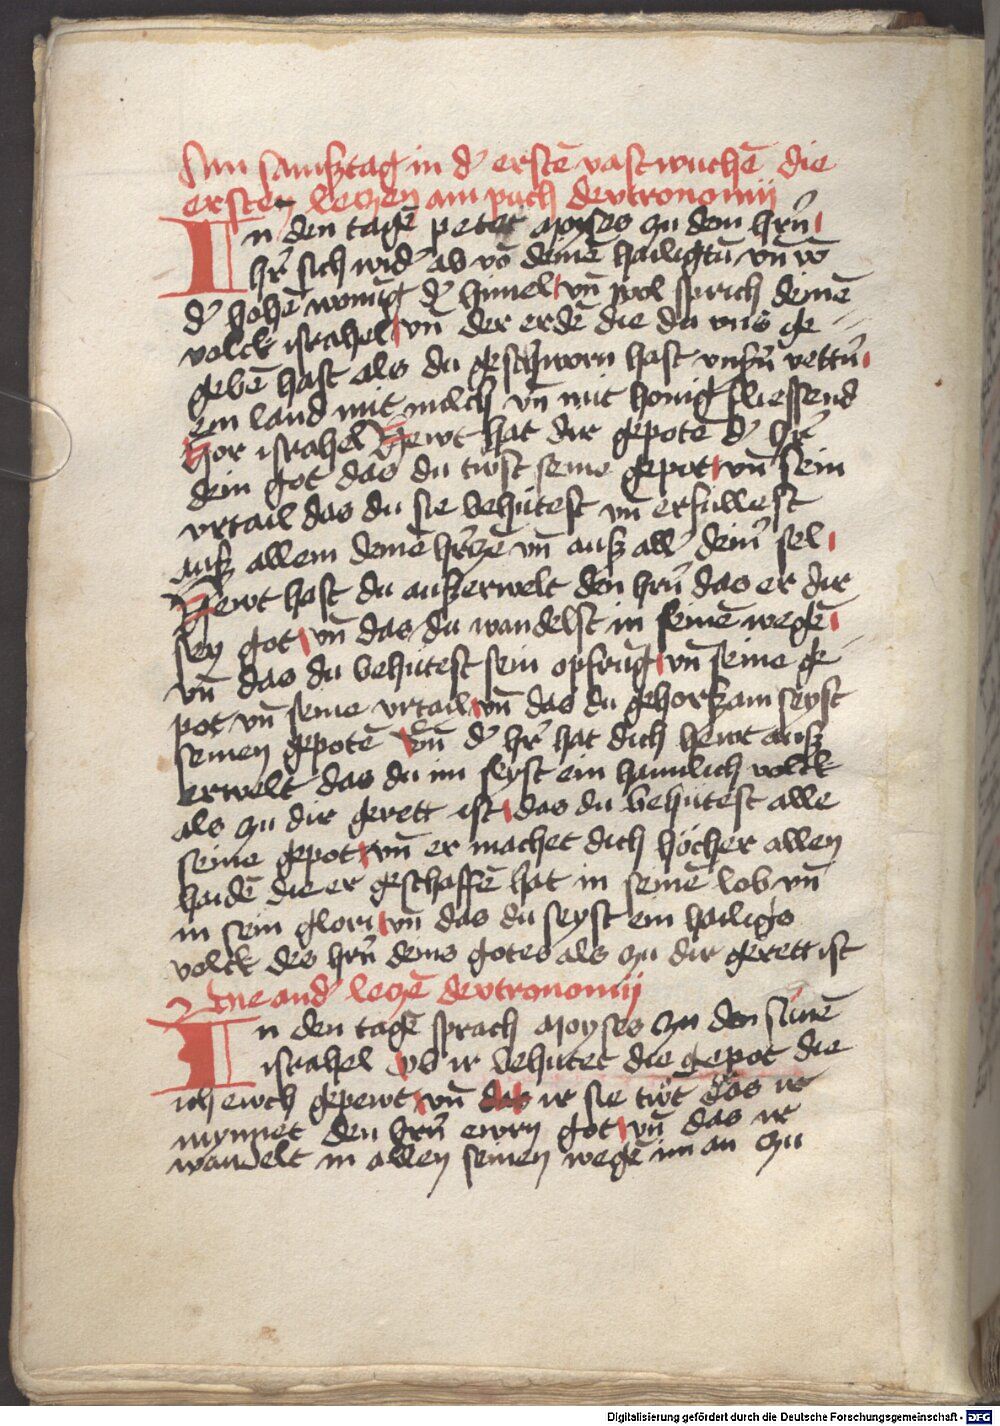 Am Samßtag in d' erstē vastwuchē die
ersten leczen am puch deutronomij
In den tagē petet Moyses zu dem hrn̄
hr̄ sich wid' ab vō deinē hailigtū vn̄ vō
d' hohē wonūg d' himel vn̄ wol sprich deinē
volck israhel vn̄ der erdē die du vns ge
gebē hast als du geschworn hast vnsn̄ vettn̄
ein land mit milch vn̄ mit honig fliessend
Hor israhel Hewt hat dir gepotē d' hr̄
dein got das du tüst seine gepot vn̄ sein
vrtail das du sie behütest vn̄ erfullest
auß allem deinē hr̄czē vn̄ auß all' dein' sel
Hewt hast du außerwelt den hrn̄ das er dir
sey got vn̄ das du wandelst in seinē wegē
vn̄ das du behütest sein opfrūg vn̄ seine ge
pot vn̄ seine vrtail vn̄ das du gehorßam seyst
seinen gepotē Vn̄ d' hr̄ hat dich hewt auß
erwelt das du im seyst ein haimlich volck
als zu dir gerett ist das du behütest alle
seine gepot vn̄ er machet dich höcher allen
haidē die er geschaffē hat in seinē lob vn̄
in sein glori vn̄ das du seyst ein hailigs
volck des hrn̄ deins gotes als zu dir gerett ist
Die and' leczē deutronomij
In den tagē sprach Moyses zu den sunē
israhel Ob ir behütet die gepot die
ich ewch gepewt vn̄ das ir sie tüt das ir
mynnet den hrn̄ ewrn got vn̄ das ir
wandelt in allen seinen wegē im an zu
Digitalisierung gefördert durch die Deutsche Forschungsgemeinschaft - DFG